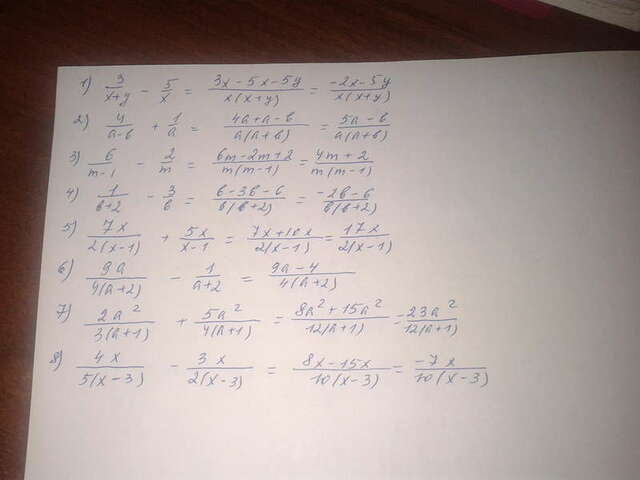 1) 3/(x+y) - 5/x = (3x-5x-5y)/(x(x+y)) = (-2x-5y)/(x(x+y))
2) 4/(a-b) + 1/a = (4a+a-b)/(a(a+b)) = (5a-b)/(a(a+b))
3) 6/(m-1) - 2/m = (6m-2m+2)/(m(m-1)) = (4m+2)/(m(m-1))
4) 1/(b+2) - 3/b = (b-3b-6)/(b(b+2)) = (-2b-6)/(b(b+2))
5) 7x/(2(x-1)) + 5x/(x-1) = (7x+10x)/(2(x-1)) = 17x/(2(x-1))
6) 9a/(4(a+2)) - 1/(a+2) = (9a-4)/(4(a+2))
7) 2a²/(3(a+1)) + 5a²/(4(a+1)) = (8a²+15a²)/(12(a+1)) = 23a²/(12(a+1))
8) 4x/(5(x-3)) - 3x/(2(x-3)) = (8x-15x)/(10(x-3)) = -7x/(10(x-3))